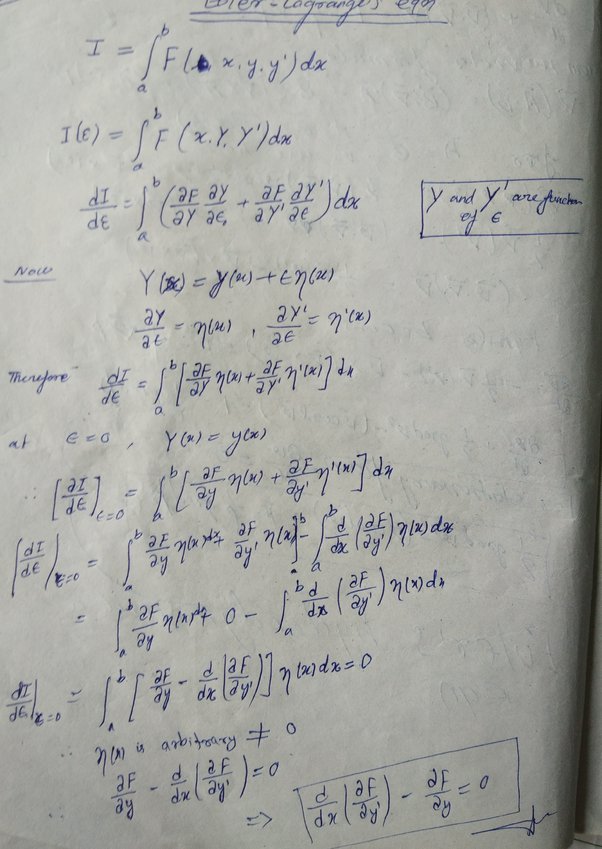 Euler-Lagrange's eqn
I = ∫_a^b F(x, y, y')dx
I(ϵ) = ∫_a^b F (x, Y, Y')dx
dI/dϵ = ∫_a^b (∂F/∂Y ∂Y/∂ϵ + ∂F/∂Y' ∂Y'/∂ϵ) dx
Y and Y' are function
of ϵ
Now Y(x) = y(x) + ϵη(x)
∂Y/∂ϵ = η(x) , ∂Y'/∂ϵ = η'(x)
Therefore dI/dϵ = ∫_a^b [∂F/∂Y η(x) + ∂F/∂Y' η'(x)] dx
at ϵ = 0 , Y(x) = y(x)
∴ [∂I/dϵ]_ϵ=0 = ∫_a^b [∂F/∂y η(x) + ∂F/∂y' η'(x)] dx
[dI/dϵ]_ϵ=0 = ∫_a^b ∂F/∂y η(x)dx + ∂F/∂y' η(x)]_a^b - ∫_a^b d/dx (∂F/∂y') η(x)dx
= ∫_a^b ∂F/∂y η(x)dx + 0 - ∫_a^b d/dx (∂F/∂y') η(x)dx
dI/dϵ|_ϵ=0 = ∫_a^b [∂F/∂y - d/dx (∂F/∂y')] η(x)dx = 0
∴ η(x) is arbitrary ≠ 0
∴ ∂F/∂y - d/dx (∂F/∂y') = 0
=> d/dx (∂F/∂y') - ∂F/∂y = 0